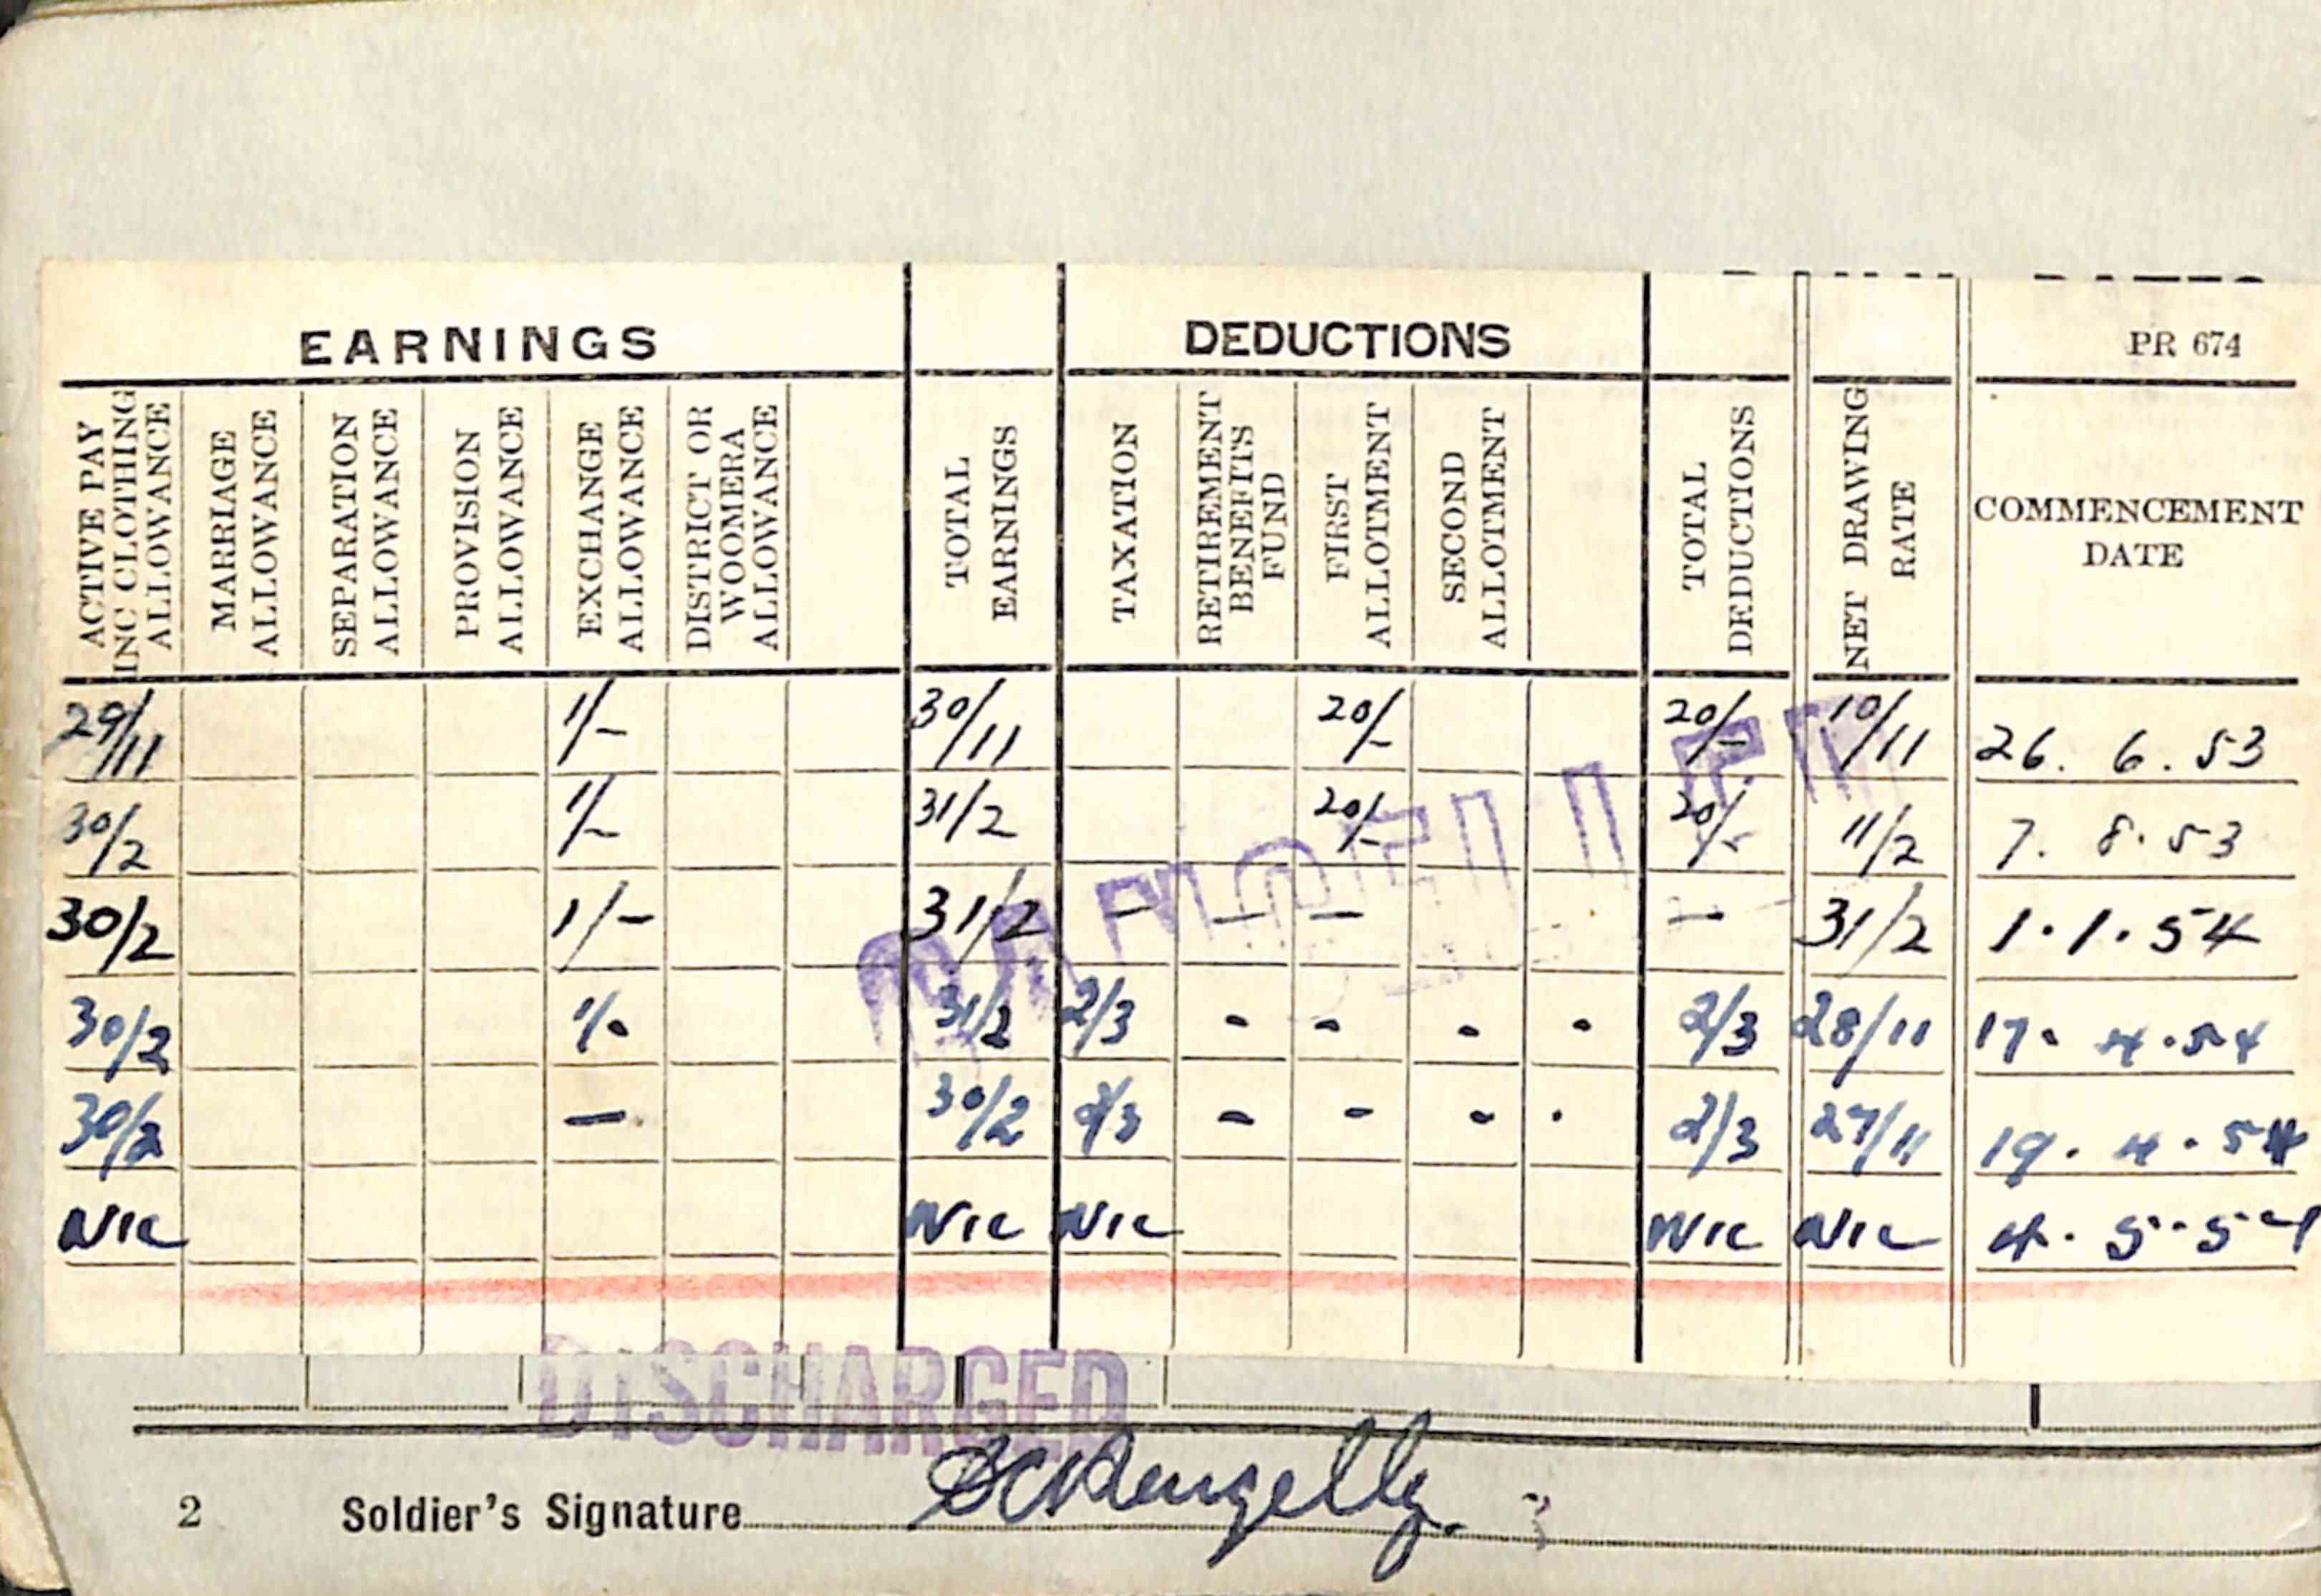 EARNINGS DEDUCTIONS PR 674
ACTIVE PAY INC CLOTHING ALLOWANCE
MARRIAGE ALLOWANCE
SEPARATION ALLOWANCE
PROVISION ALLOWANCE
EXCHANGE ALLOWANCE
DISTRICT OR WOOMERA ALLOWANCE
TOTAL EARNINGS
TAXATION
RETIREMENT BENEFITS FUND
FIRST ALLOTMENT
SECOND ALLOTMENT
TOTAL DEDUCTIONS
NET DRAWING RATE
COMMENCEMENT DATE
29/11 1/- 30/11 20/- 20/- 10/11 26. 6. 53
30/2 1/- 31/2 20/- 20/- 11/2 7. 8. 53
30/2 1/- 31/2 - - - - 31/2 1.1.54
30/2 1/- 31/2 2/3 - - - - 2/3 28/11 17. 4.54
30/2 - 30/2 2/3 - - - - 2/3 27/11 19. 4. 54
NIL NIL NIL NIL NIL 4. 5.54
DISCHARGED
2 Soldier's Signature